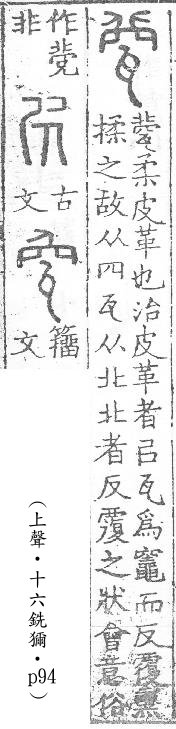 柔皮革也治皮革者㠯瓦爲竈而反覆熏
揉之故从四瓦从北北者反覆之狀會意俗
作
非
古
文
籀
文
(上聲·十六銑獮·p94)